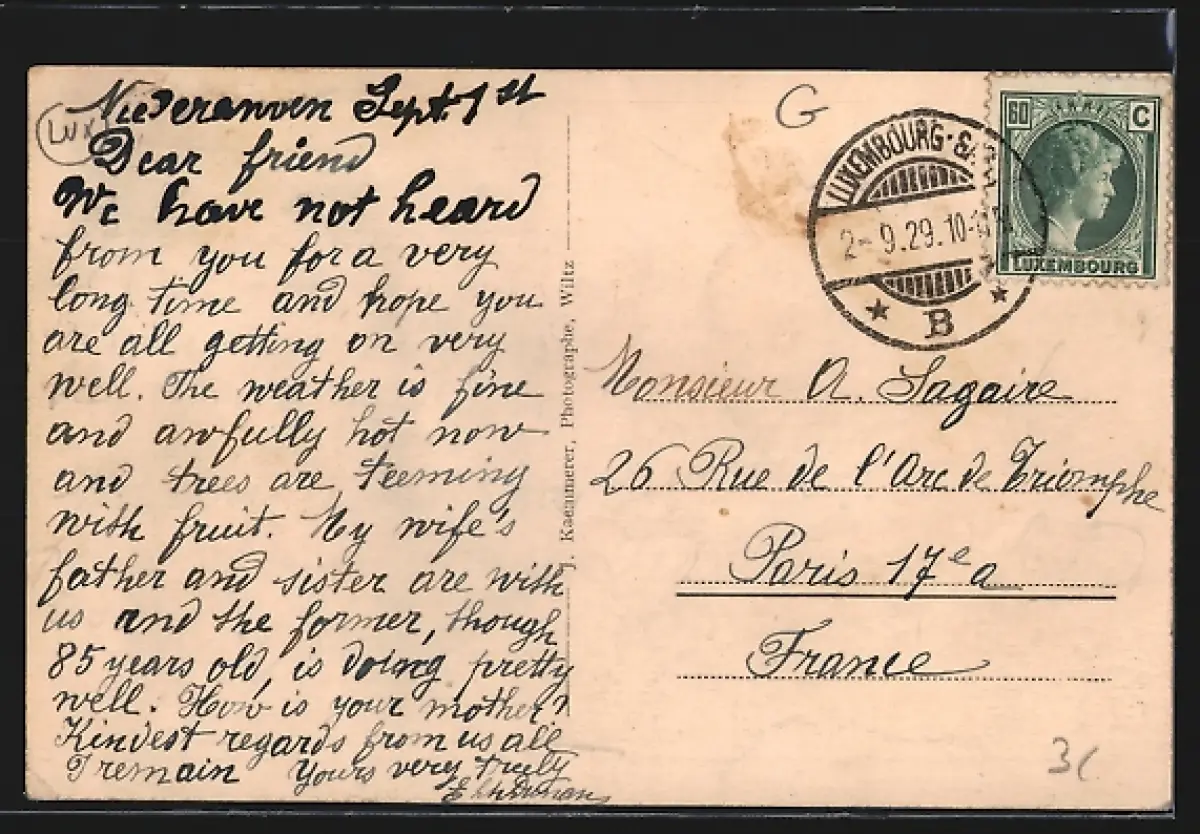 Niederanven Sept. 1st
LUX
Dear friend
We have not heard
from you for a very
long time and hope you
are all getting on very
well. The weather is fine
and awfully hot now
and trees are teeming
with fruit. My wife's
father and sister are with
us and the former, though
85 years old, is doing pretty
well. How is your mother?
Kindest regards from us all
I remain Yours very truly
Kaemmerer, Photographe, Wiltz
G
LUXEMBOURG
2-9.29.10-
B
60 C
LUXEMBOURG
Monsieur A. Sagaire
26 Rue de l'Arc de Triomphe
Paris 17e a
France